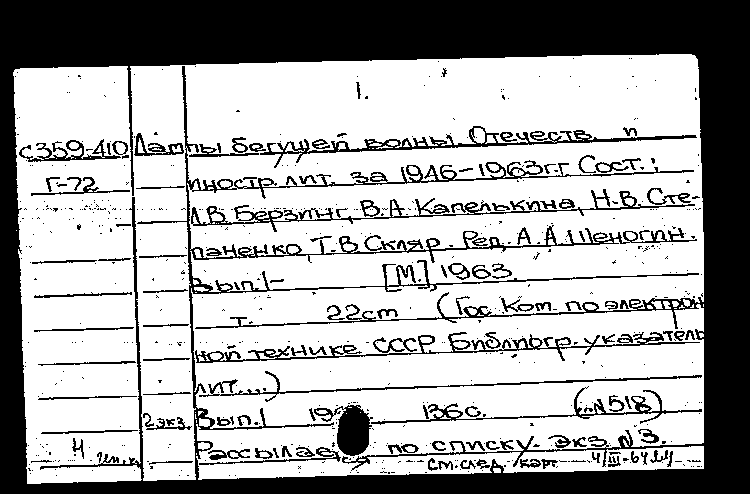 1.
с359-410 Лампы бегущей волны. Отечеств. и
Г-72 иностр. лит. за 1946-1963 г.г. Сост.:
Л.В. Берзинг, В.А. Капелькина, Н.В. Сте-
паненко, Т.В. Скляр. Ред. А.А. Шеногин.
Вып. 1- [М.], 1963.
т. 22cm (Гос. Ком. по электрон
ной технике СССР. Библиогр. указатель
лит....)
2 экз. Вып. 1 19 136 с. (N518)
Ч Рассылае по списку. экз. N3.
см. след. карт 4/III-64